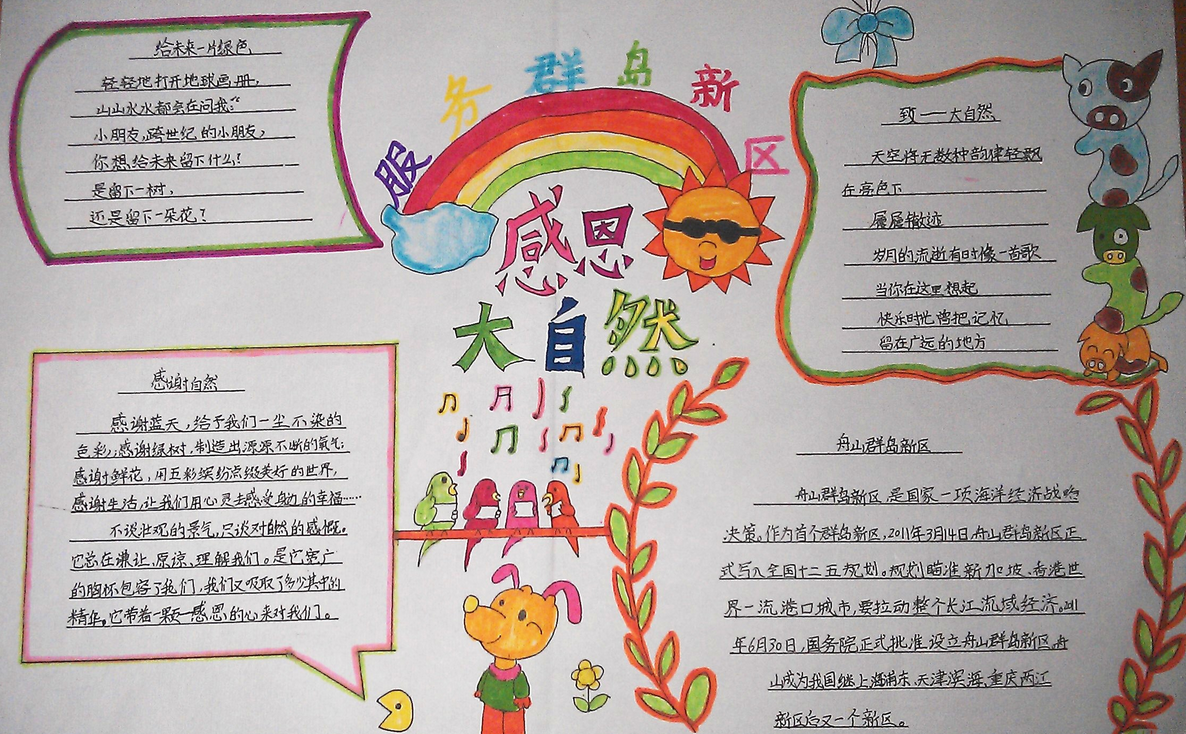 服务群岛新区
感恩
大自然
给未来一片绿色
轻轻地打开地球画册，
山山水水都会在问我：“
小朋友，跨世纪的小朋友，
你想给未来留下什么！
是留下一树，
还是留下一朵花？
致——大自然
天空将无数种韵律轻飘
在亮色下
屡屡辙迹
岁月的流逝有时像一首歌
当你在这里想起
快乐时光曾把记忆
留在广远的地方
感谢自然
感谢蓝天，给予我们一尘不染的
色彩；感谢绿树，制造出源源不断的氧气；
感谢鲜花，用五彩缤纷点缀美好的世界，
感谢生活，让我们用心灵去感受身边的幸福……
不谈壮观的景气，只谈对自然的感慨。
它总在谦让、原谅、理解我们。是它宽广
的胸怀包容了我们，我们又吸取了多少其中的
精华。它带着一颗感恩的心来对我们。
舟山群岛新区
舟山群岛新区，是国家一项海洋经济战略
决策。作为首个群岛新区，2011年3月14日，舟山群岛新区正
式写入全国十二五规划。规划瞄准新加坡、香港世
界一流港口城市，要拉动整个长江流域经济。2011
年6月30日，国务院正式批准设立舟山群岛新区，舟
山成为我国继上海浦东、天津滨海、重庆两江
新区后又一个新区。